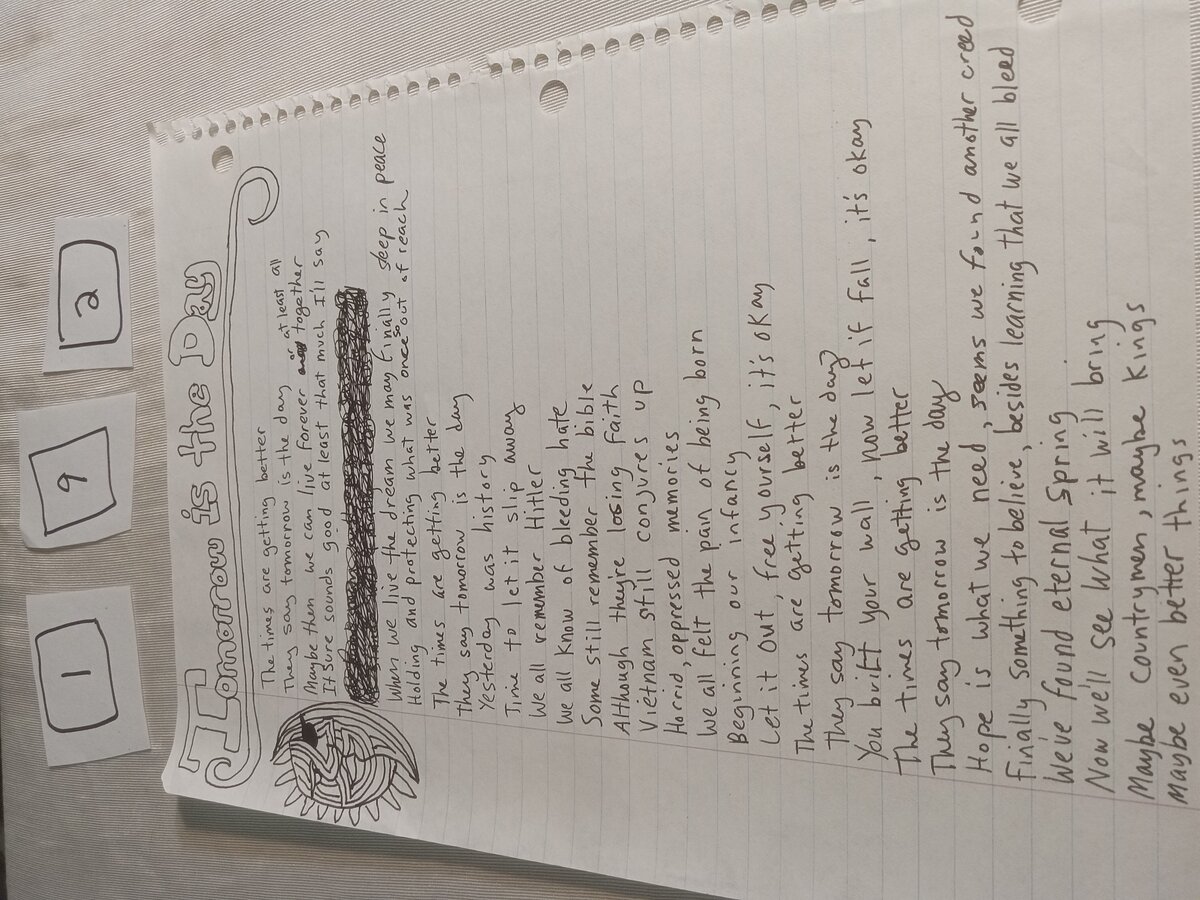 1
9
2
Tomorrow is the Day
The times are getting better
They say tomorrow is the day or at least all
Maybe then we can live forever together
It sure sounds good at least that much I'll say
When we live the dream we may finally sleep in peace
Holding and protecting what was once so out of reach
The times are getting better
They say tomorrow is the day
Yesterday was history
Time to let it slip away
We all remember Hitler
We all know of bleeding hate
Some still remember the bible
Although they're losing faith
Vietnam still conjures up
Horrid, oppressed memories
We all felt the pain of being born
Beginning our infancy
Let it out, free yourself, it's okay
The times are getting better
They say tomorrow is the day
You built your wall, now let if fall, it's okay
The times are getting better
They say tomorrow is the day
Hope is what we need, seems we found another creed
Finally something to believe, besides learning that we all bleed
We've found eternal spring
Now we'll see what it will bring
Maybe countrymen, maybe kings
Maybe even better things